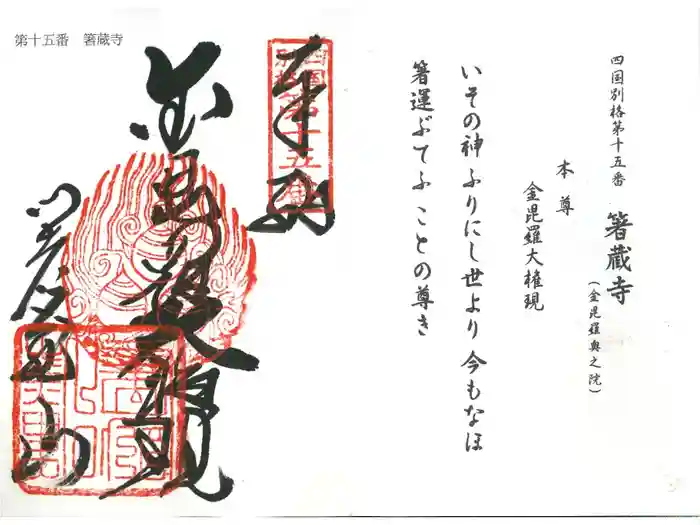 四国別格第十五番
箸蔵寺
(金毘羅奥之院)
本尊
金毘羅大権現
いその神ふりにし世より今もなほ
箸運ぶてふことの尊き
第十五番 箸蔵寺
奉納
四国
別格第十五番
金毘羅大権現
箸蔵山